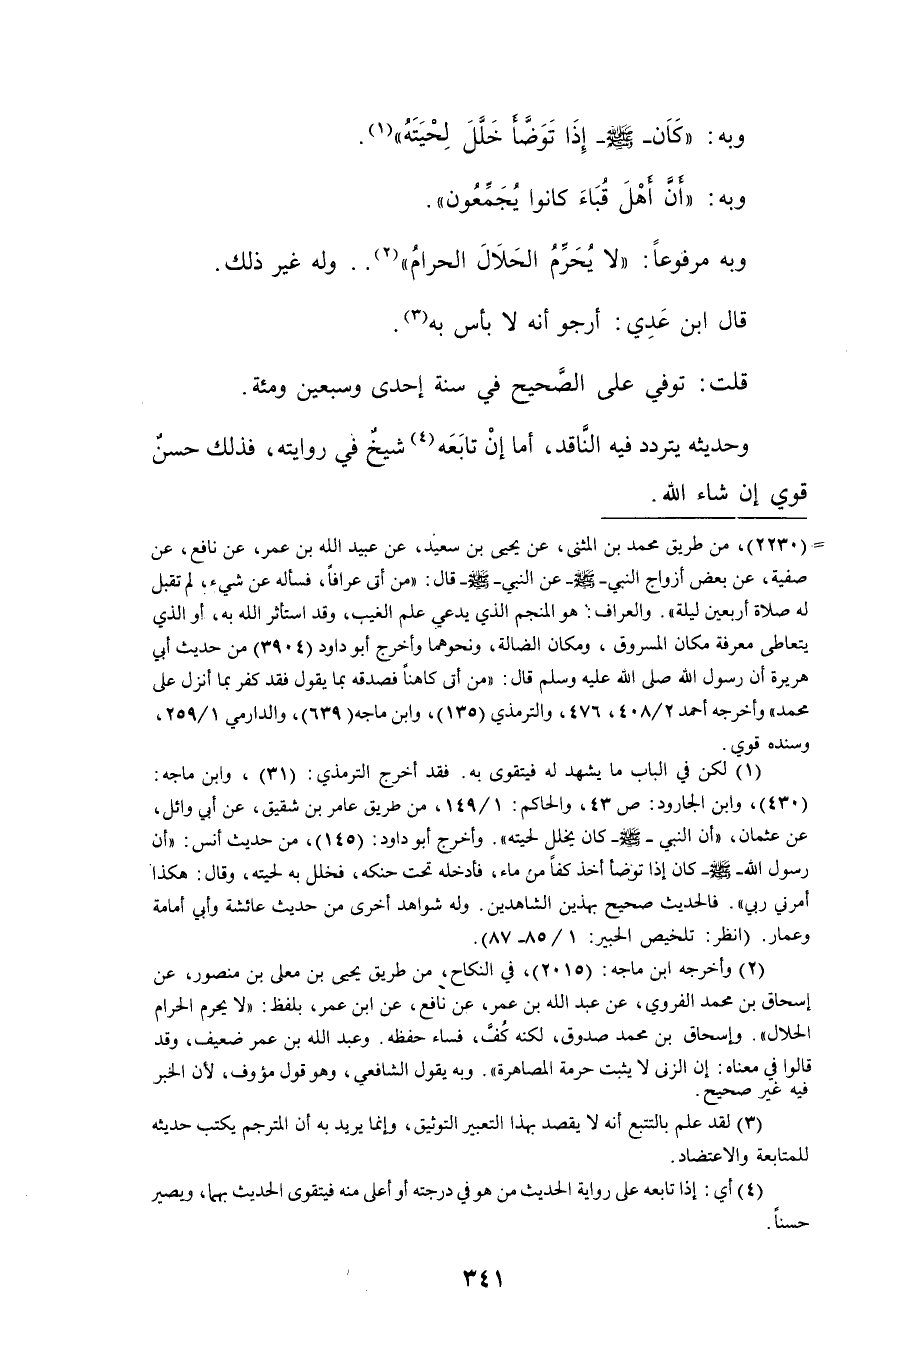 وبه: «كَانَ ـ ﷺ ـ إِذَا تَوَضَّأَ خَلَّلَ لِحْيَتَهُ»(١).
وبه: «أَنَّ أَهْلَ قُبَاءَ كانوا يُجَمِّعُون».
وبه مرفوعاً: «لا يُحَرِّمُ الحَلَالَ الحرامُ»(٢).. وله غير ذلك.
قال ابن عَدِي: أرجو أنه لا بأس به(٣).
قلت: توفي على الصَّحيح في سنة إحدى وسبعين ومئة.
وحديثه يتردد فيه النَّاقد، أما إنْ تابَعَه(٤) شيخٌ في روايته، فذلك حسنٌ
قوي إن شاء الله.
= (٢٢٣٠)، من طريق محمد بن المثنى، عن يحيى بن سعيد، عن عبيد الله بن عمر، عن نافع، عن
صفية، عن بعض أزواج النبي ـ ﷺ ـ عن النبي ـ ﷺ ـ قال: «من أتى عرافاً، فسأله عن شيء، لم تقبل
له صلاة أربعين ليلة». والعراف: هو المنجم الذي يدعي علم الغيب، وقد استأثر الله به، أو الذي
يتعاطى معرفة مكان المسروق، ومكان الضالة، ونحوهما وأخرج أبو داود (٣٩٠٤) من حديث أبي
هريرة أن رسول الله صلى الله عليه وسلم قال: «من أتى كاهناً فصدقه بما يقول فقد كفر بما أنزل على
محمد» وأخرجه أحمد ٤٠٨/٢، ٤٧٦، والترمذي (١٣٥)، وابن ماجه( ٦٣٩)، والدارمي ٢٥٩/١،
وسنده قوي.
(١) لكن في الباب ما يشهد له فيتقوى به. فقد أخرج الترمذي: (٣١) ، وابن ماجه:
(٤٣٠)، وابن الجارود: ص ٤٣، والحاكم: ١٤٩/١، من طريق عامر بن شقيق، عن أبي وائل،
عن عثمان، «أن النبي ـ ﷺ ـ كان يخلل لحيته». وأخرج أبو داود: (١٤٥)، من حديث أنس: «أن
رسول الله ـ ﷺ ـ كان إذا توضأ أخذ كفاً من ماء، فأدخله تحت حنكه، فخلل به لحيته، وقال: هكذا
أمرني ربي». فالحديث صحيح بهذين الشاهدين. وله شواهد أخرى من حديث عائشة وأبي أمامة
وعمار. (انظر: تلخيص الحبير: ١ / ٨٥ـ ٨٧).
(٢) وأخرجه ابن ماجه: (٢٠١٥)، في النكاح، من طريق يحيى بن معلى بن منصور، عن
إسحاق بن محمد الفروي، عن عبد الله بن عمر، عن نافع، عن ابن عمر، بلفظ: «لا يحرم الحرام
الحلال». وإسحاق بن محمد صدوق، لكنه كُفَّ، فساء حفظه. وعبد الله بن عمر ضعيف، وقد
قالوا في معناه: إن الزنى لا يثبت حرمة المصاهرة». وبه يقول الشافعي، وهو قول مؤوف، لأن الخبر
فيه غير صحيح.
(٣) لقد علم بالتتبع أنه لا يقصد بهذا التعبير التوثيق، وإنما يريد به أن المترجم يكتب حديثه
للمتابعة والاعتضاد.
(٤) أي: إذا تابعه على رواية الحديث من هو في درجته أو أعلى منه فيتقوى الحديث بهما، ويصير
حسناً.
٣٤١